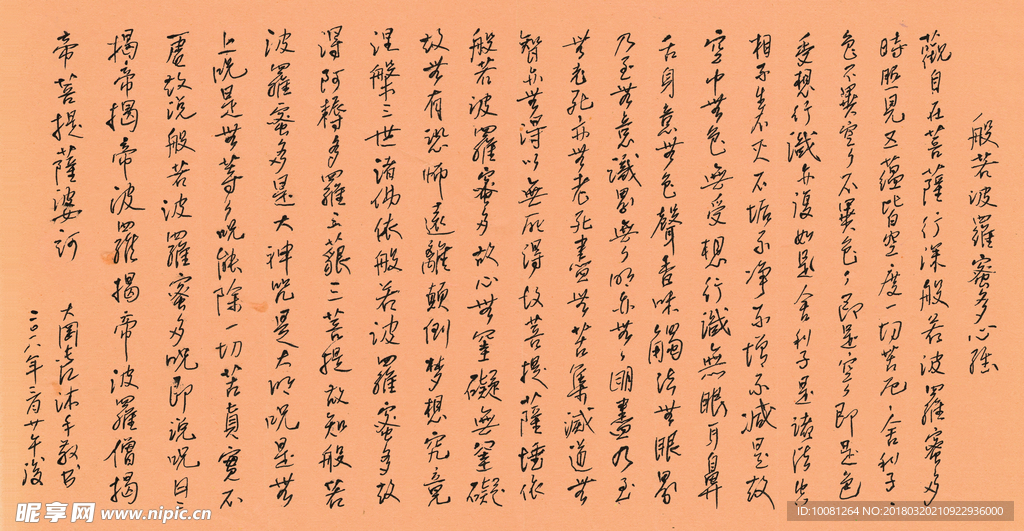 般若波羅蜜多心經
觀自在菩薩行深般若波羅蜜多
時照見五蘊皆空度一切苦厄舍利子
色不異空空不異色色即是空空即是色
受想行識亦復如是舍利子是諸法空
相不生不灭不垢不净不增不减是故
空中無色無受想行識無眼耳鼻
舌身意無色聲香味觸法無眼界
乃至無意識界無無明亦無無明盡乃至
無老死亦無老死盡無苦集滅道無
智亦無得以無所得故菩提薩埵依
般若波羅蜜多故心無罣礙無罣礙
故無有恐怖遠離顛倒梦想究竟
涅槃三世諸佛依般若波羅蜜多故
得阿耨多羅三藐三菩提故知般若
波羅蜜多是大神咒是大明咒是無
上咒是無等等咒能除一切苦真實不
虚故说般若波羅蜜多咒即说咒曰
揭帝揭帝波羅揭帝波羅僧揭
帝菩提薩婆诃
昵享网 www.nipic.cn
ID:10081264 NO:20180320210922936000